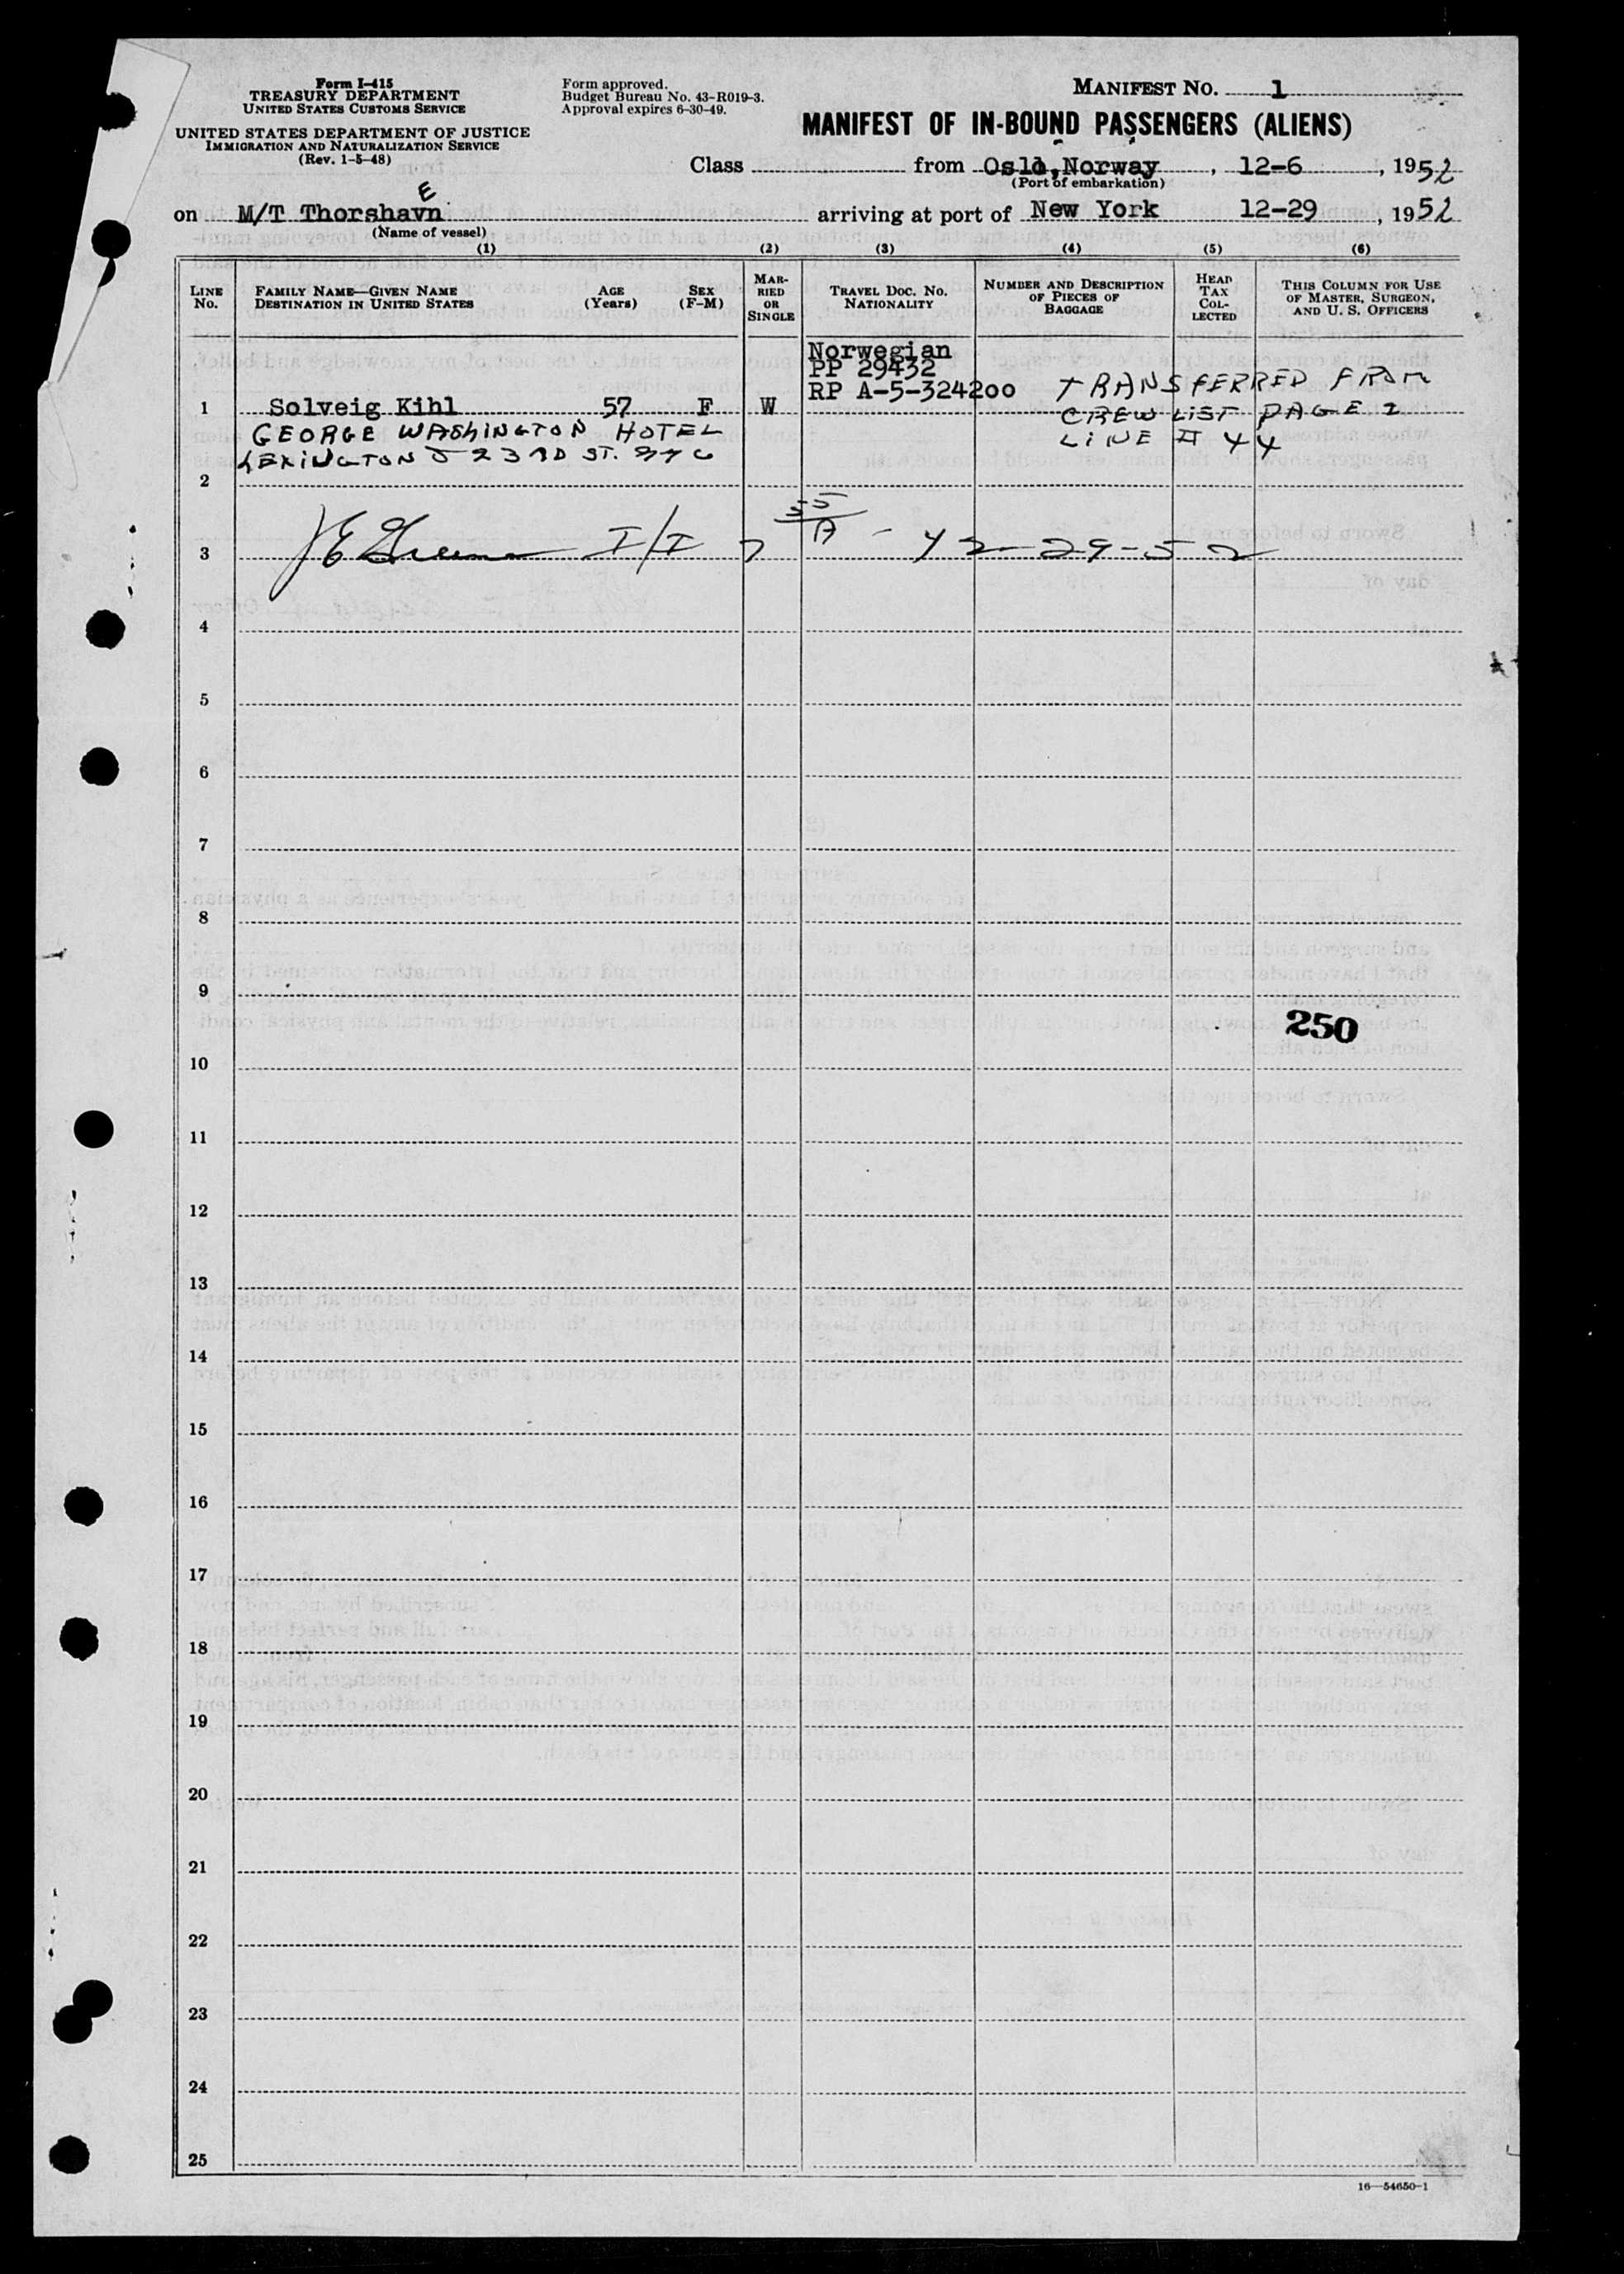 Form I-415
TREASURY DEPARTMENT
UNITED STATES CUSTOMS SERVICE
UNITED STATES DEPARTMENT OF JUSTICE
IMMIGRATION AND NATURALIZATION SERVICE
(Rev. 1-5-48)
Form approved.
Budget Bureau No. 43-R019-3.
Approval expires 6-30-49.
MANIFEST NO. 1
MANIFEST OF IN-BOUND PASSENGERS (ALIENS)
Class from Oslo, Norway, 12-6, 1952
(Port of embarkation)
E
on M/T Thorshavn arriving at port of New York 12-29, 1952
(Name of vessel)
(1) (2) (3) (4) (5) (6)
LINE No. FAMILY NAME—GIVEN NAME DESTINATION IN UNITED STATES AGE (Years) SEX (F-M) MARRIED OR SINGLE TRAVEL DOC. NO. NATIONALITY NUMBER AND DESCRIPTION OF PIECES OF BAGGAGE HEAD TAX COLLECTED THIS COLUMN FOR USE OF MASTER, SURGEON, AND U. S. OFFICERS
Norwegian
PP 29432
RP A-5-324200 TRANSFERRED FROM
1 Solveig Kihl 57 F W CREW LIST PAGE 2
GEORGE WASHINGTON HOTEL LINE # 44
LEXINGTON & 23RD ST. NYC
2
3 I/I 12-29-52
4
5
6
7
8
9
250
10
11
12
13
14
15
16
17
18
19
20
21
22
23
24
25
16—54650-1